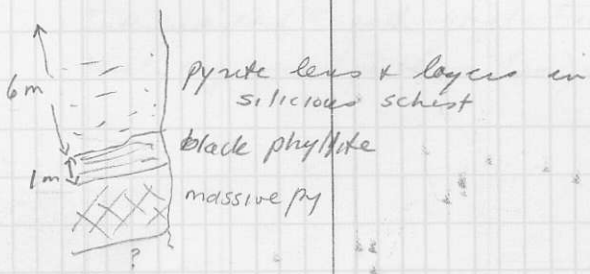 6m
pyrite lens + layers in
silicious schist
black phyllite
1m
massive py
?